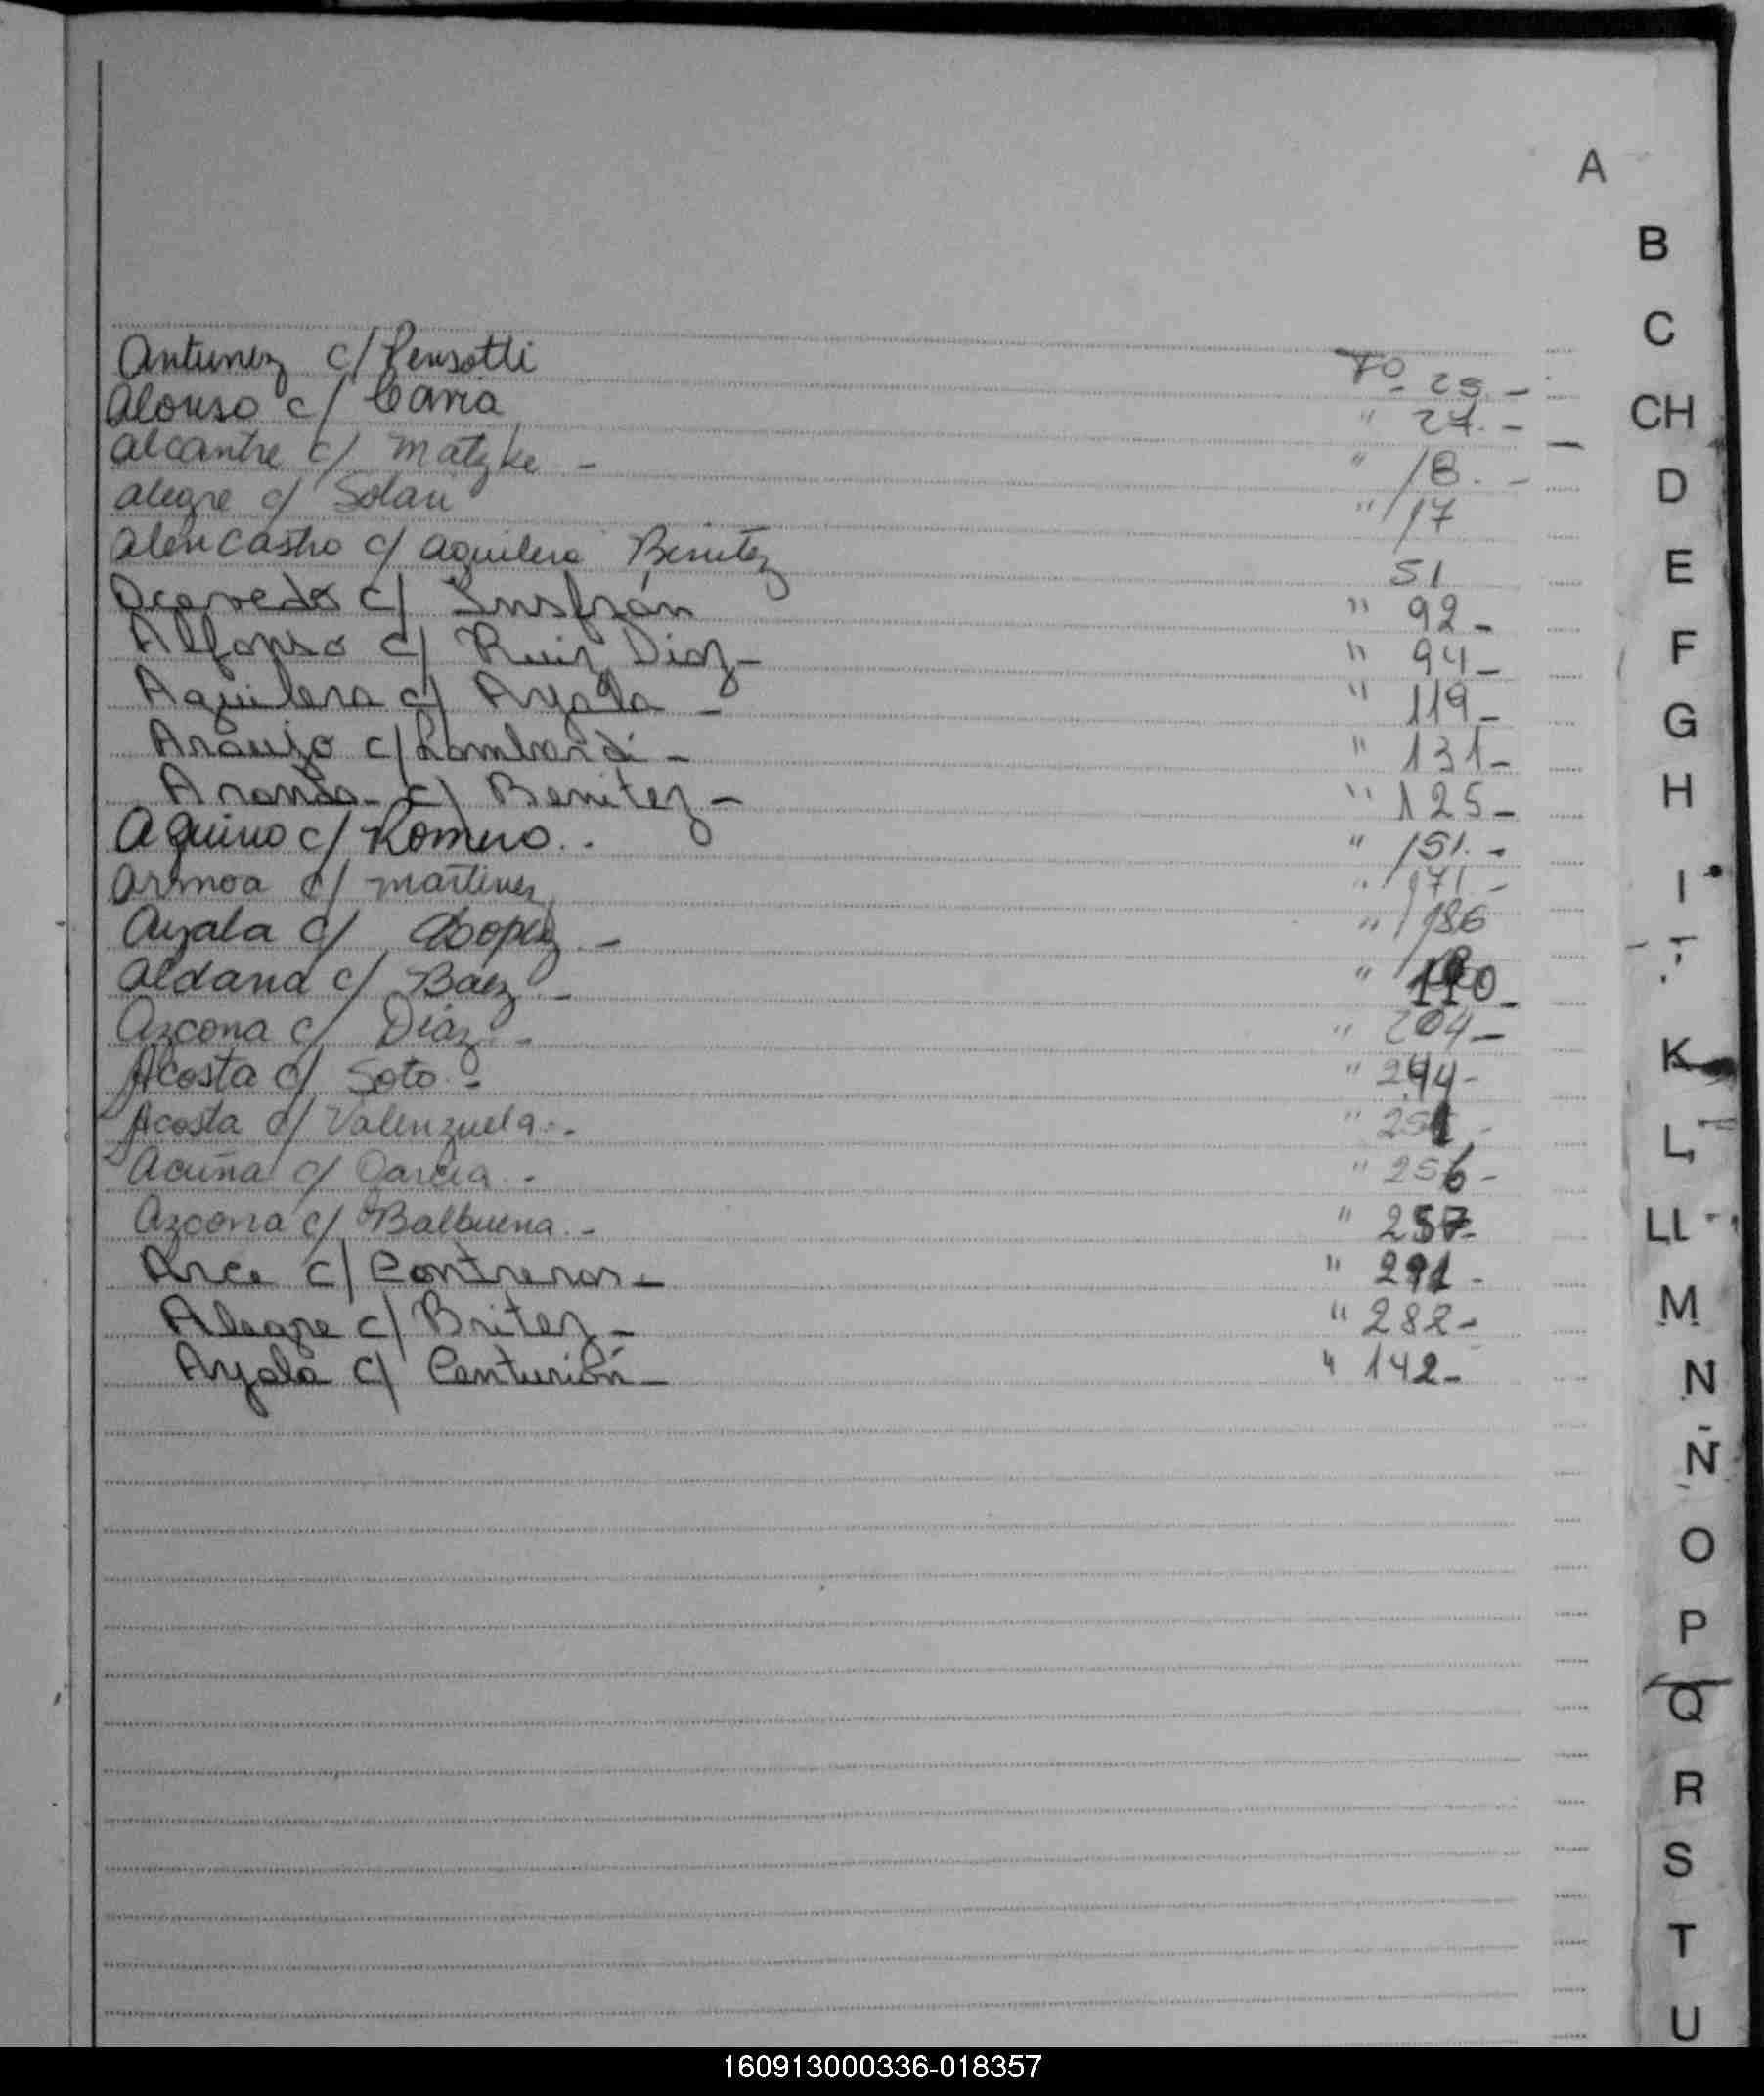 A
Antunez c/ Pensotti Fo. 25.-
Alonso c/ Carria " 27.-
Alcantre c/ Matzke - " 18.-
Alegre c/ Solari " 17
Alencastro c/ Aguilera Benitez 51
Acevedo c/ Insfrán " 92-
Alfonso c/ Ruiz Diaz- " 94-
Aguilera c/ Ayala - " 119-
Araujo c/ Lombardi - " 131-
Aranda- c/ Benitez - " 125-
Aquino c/ Romero.. " 151.-
Armoa c/ Martinez " 171.-
Ayala c/ Lopez - " 186
Aldana c/ Baez - " 190-
Azcona c/ Diaz.- " 204-
Acosta c/ Soto.- " 244-
Acosta c/ Valenzuela.- " 251 -
Acuña c/ Garcia.- " 256-
Azcona c/ Balbuena.- " 257-
Arce c/ Contreras- " 291-
Alegre c/ Britez- " 282-
Ayala c/ Centurión- " 142-
B
C
CH
D
E
F
G
H
I
K
L
LL
M
N
Ñ
O
P
Q
R
S
T
U
160913000336-018357